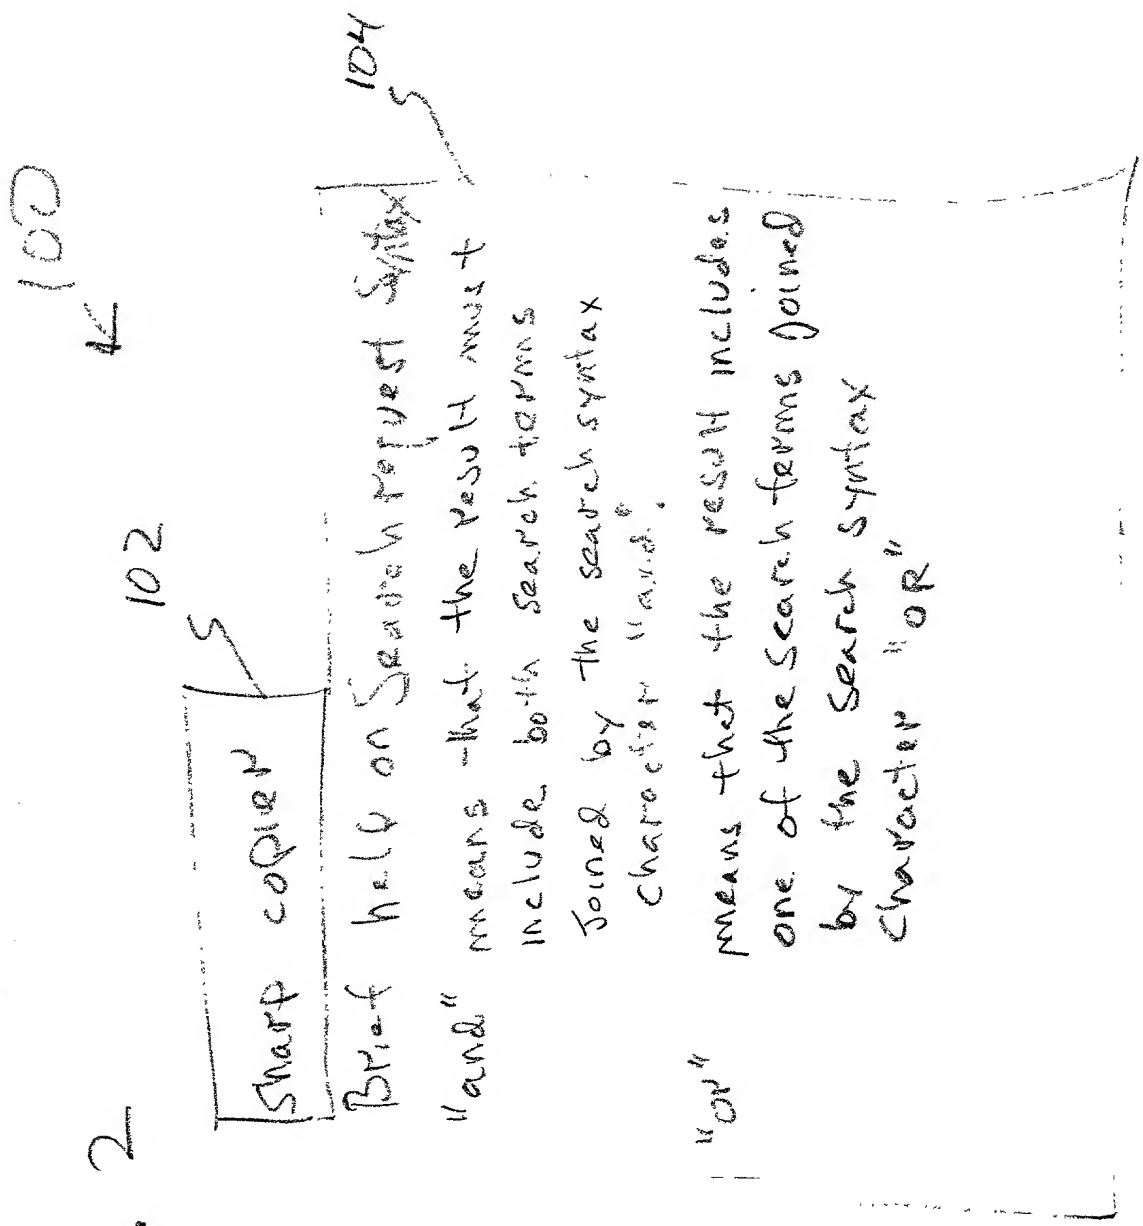 2
100
102
Sharp copier
104
Brief help on Search request Syntax
"and" means that the result must
include both search terms
Joined by the search syntax
character "and".
"or" means that the result includes
one of the search terms joined
by the search syntax
character "OR"